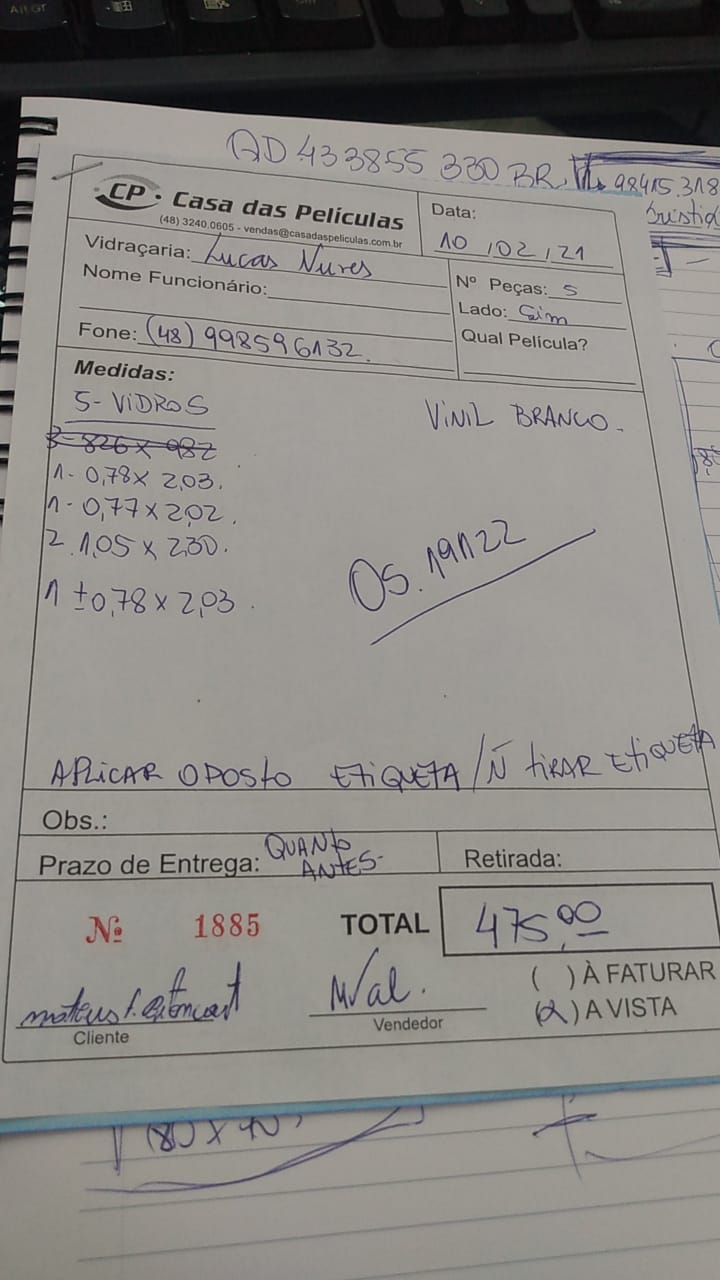 AD 433855 330 BR.
98415.318
CP. Casa das Películas
(48) 3240.0605 - vendas@casadaspeliculas.com.br
Data:
10/02/21
Vidraçaria: Lucas Nunes
Nome Funcionário:
Nº Peças: 5
Lado: Sim
Fone: (48) 998596132.
Qual Película?
Medidas:
5- VIDROS
VINIL BRANCO.
3- 826 x 982
1- 0,78 x 2,03.
1- 0,77 x 2,02.
2. 1,05 x 2,30.
OS. 19122
1 ± 0,78 x 2,03.
APLICAR OPOSTO ETIQUETA / Ñ TIRAR ETIQUETA
Obs.:
Prazo de Entrega: QUANTO
ANTES-
Retirada:
Nº 1885
TOTAL 475,00
mateus
Cliente
Vendedor
( ) À FATURAR
(x) A VISTA
(80 x